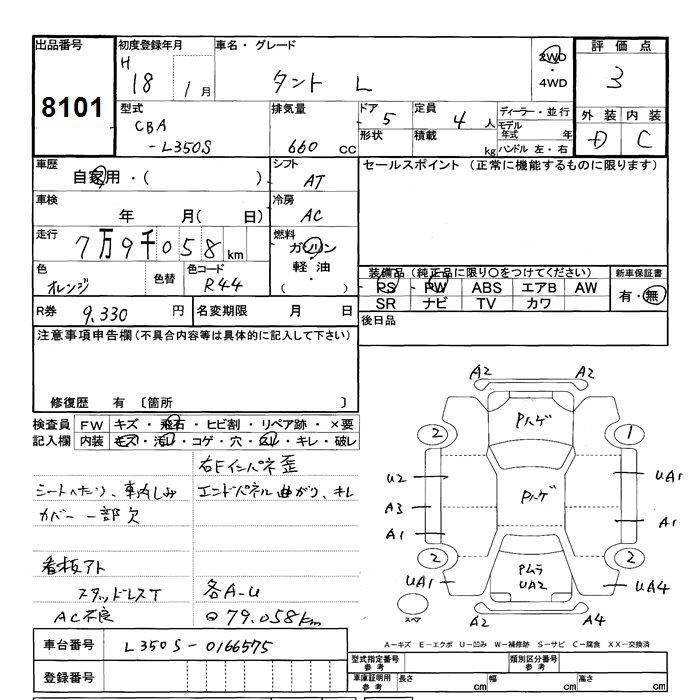 出品番号 初度登録年月 車名・グレード 2WD ・ 4WD 評価点
8101 H 18 1月 タント L 3
外装 内装
D C
型式 排気量 ドア 5 定員 4人 ディーラー・並行
CBA モデル年式 年
-L350S 660 CC 形状 積載 kg ハンドル 左・右
車歴 シフト セールスポイント (正常に機能するものに限ります)
自家用・( ) AT
車検 冷房
年 月( 日) AC
走行 燃料
7万9千058km ガソリン
軽油
( )
色 色替 色コード
オレンジ R44
装備品 (純正品に限り○をつけてください) 新車保証書
PS PW ABS エアB AW 有・無
SR ナビ TV カワ
R券 9,330 円 名変期限 月 日 後日品
注意事項申告欄(不具合内容等は具体的に記入して下さい)
修復歴 有 〔箇所 〕
検査員 FW キズ・飛石・ヒビ割・リペア跡・×要
記入欄 内装 キズ・汚レ・コゲ・穴・スレ・キレ・破レ
右Fインパネ歪
シートへたり、車内しみ エンドパネル曲がり、キレ
カバー一部欠
看板アト
スタッドレスT 各A-U
AC不良 ⊙79,058km
A2 A2
Pハゲ
2 1
U2 UA1
A3 Pハゲ
A1 A1
2 2
UA1 Pムラ UA2 UA4
スペア A2 A4
車台番号 L350S-0166575
A-キズ E-エクボ U-凹み W-補修跡 S-サビ C-腐食 XX-交換済
型式指定番号 参考 類別区分番号 参考
登録番号 車庫証明用 参考 長さ cm 幅 cm 高さ cm